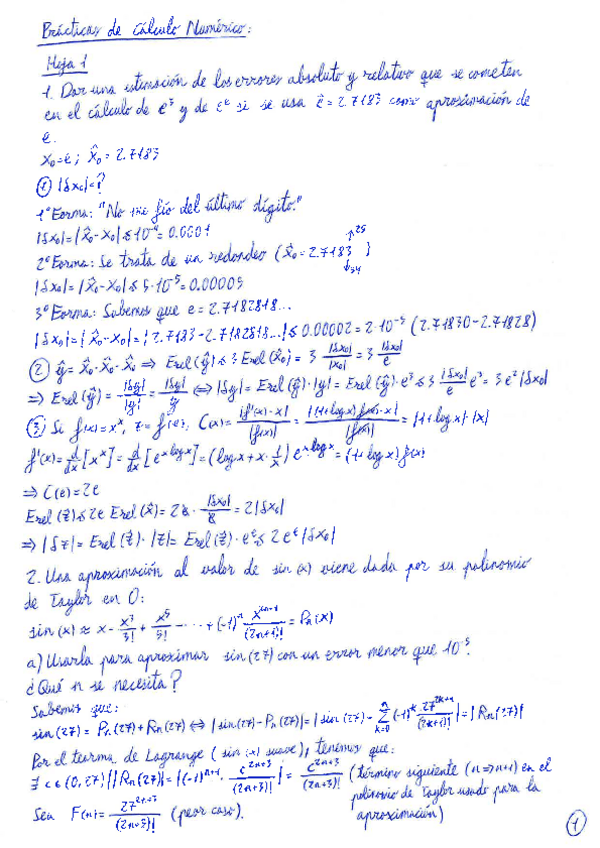 Prácticas de Cálculo Numérico:
Hoja 1
1. Dar una estimación de los errores absoluto y relativo que se cometen
en el cálculo de e³ y de e^e si se usa ê = 2.7183 como aproximación de
e.
x₀ = e ; x̂₀ = 2.7183
① |δx₀| = ?
1ª Forma: "No me fío del último dígito."
|δx₀| = |x̂₀ - x₀| ≤ 10⁻⁴ = 0.0001
2ª Forma: Se trata de un redondeo (x̂₀ = 2.7183 )
|δx₀| = |x̂₀ - x₀| ≤ 5·10⁻⁵ = 0.00005
3ª Forma: Sabemos que e = 2.7182818...
|δx₀| = |x̂₀ - x₀| = |2.7183 - 2.7182818...| ≤ 0.00002 = 2·10⁻⁵ (2.71830 - 2.71828)
② ŷ = x̂₀·x̂₀·x̂₀ ⇒ Erel(ŷ) ≤ 3 Erel(x̂₀) = 3 |δx₀|/|x₀| = 3 |δx₀|/e
⇒ Erel(ŷ) = |δy|/|y| = |δy|/y ⇔ |δy| = Erel(ŷ)·|y| = Erel(ŷ)·e³ ≤ 3 |δx₀|/e e³ = 3e²|δx₀|
③ Si f(x) = x^x, z = f(e), C(x) = |f'(x)·x|/|f(x)| = |(1+log x) f(x)·x|/|f(x)| = |1+log x|·|x|
f'(x) = d/dx [x^x] = d/dx [e^(x log x)] = (log x + x·1/x) e^(x log x) = (1+log x) f(x)
⇒ C(e) = 2e
Erel(ẑ) ≤ 2e Erel(x̂) = 2e · |δx₀|/e = 2|δx₀|
⇒ |δz| = Erel(ẑ)·|z| = Erel(ẑ)·e^e ≤ 2e^e |δx₀|
2. Una aproximación al valor de sin(x) viene dada por su polinomio
de Taylor en 0:
sin(x) ≈ x - x³/3! + x⁵/5! - ... + (-1)ⁿ x^(2n+1)/(2n+1)! = Pₙ(x)
a) Usarla para aproximar sin(27) con un error menor que 10⁻⁵.
¿Qué n se necesita?
Sabemos que:
sin(27) = Pₙ(27) + Rₙ(27) ⇔ |sin(27) - Pₙ(27)| = |sin(27) - Σ_(k=0)^n (-1)^k 27^(2k+1)/(2k+1)!| = |Rₙ(27)|
Por el teorema de Lagrange (sin(x) suave), tenemos que:
∃ c ∈ (0,27) | |Rₙ(27)| = |(-1)^(n+1) · c^(2n+3)/(2n+3)!| = c^(2n+3)/(2n+3)! (término siguiente (n ⇒ n+1) en el
polinomio de Taylor usado para la
aproximación)
Sea F(n) = 27^(2n+3)/(2n+3)! (peor caso).
①